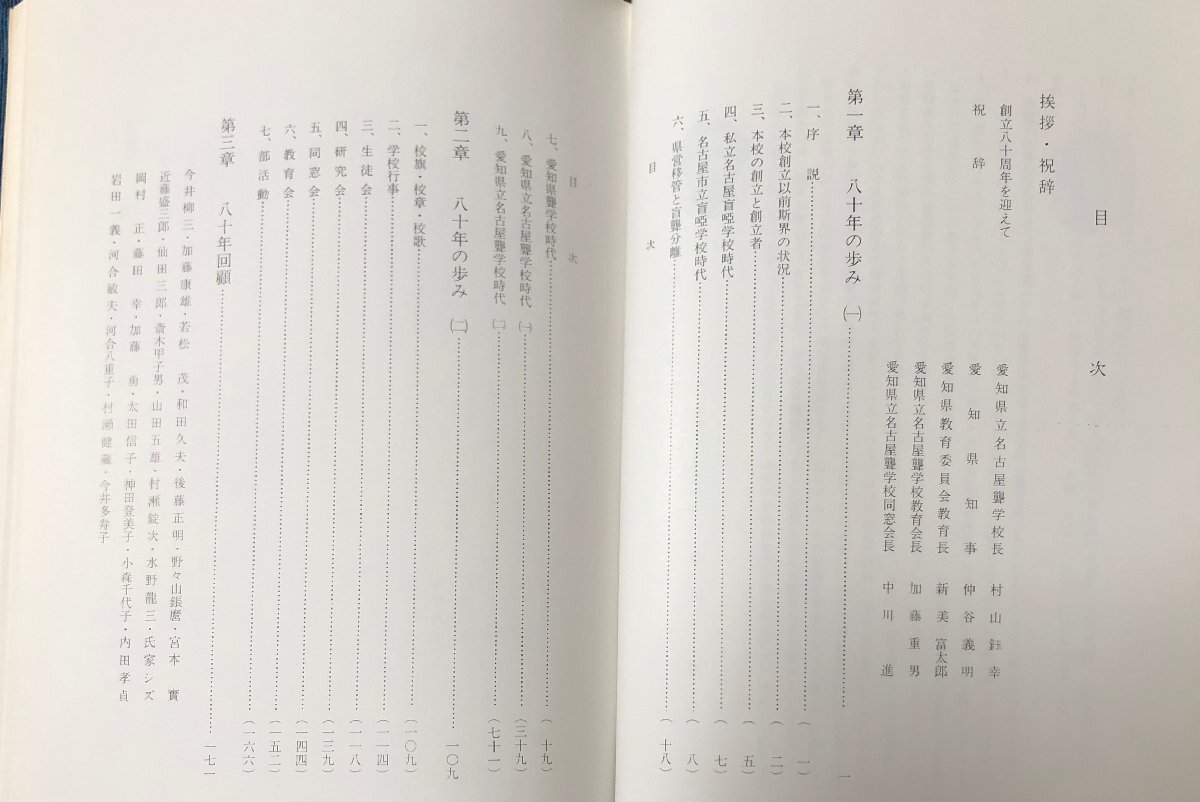 目次
挨拶・祝辞
創立八十周年を迎えて
愛知県立名古屋聾学校長 村山鈺幸
祝辞
愛知県知事 仲谷義明
愛知県教育委員会教育長 新美富太郎
愛知県立名古屋聾学校教育会長 加藤重男
愛知県立名古屋聾学校同窓会長 中川進
第一章 八十年の歩み (一)……一
一、序説……(一)
二、本校創立以前斯界の状況……(二)
三、本校の創立と創立者……(五)
四、私立名古屋盲啞学校時代……(七)
五、名古屋市立盲啞学校時代……(八)
六、県営移管と盲聾分離……(十八)
目次
目次
七、愛知県聾学校時代……(十九)
八、愛知県立名古屋聾学校時代 (一)……(三十九)
九、愛知県立名古屋聾学校時代 (二)……(七十一)
第二章 八十年の歩み (二)……一〇九
一、校旗・校章・校歌……(一〇九)
二、学校行事……(一一四)
三、生徒会……(一一八)
四、研究会……(一三九)
五、同窓会……(一四四)
六、教育会……(一五二)
七、部活動……(一六六)
第三章 八十年回顧……一七一
今井柳三・加藤康雄・若松茂・和田久夫・後藤正明・野々山鋹麿・宮本實
近藤盛三郎・仙田三郎・斎木甲子男・山田五雄・村瀬錠次・水野龍三・氏家シズ
岡村正・藤田幸・加藤勇・太田信子・神田登美子・小森千代子・内田孝貞
岩田一義・河合敏夫・河合八重子・村瀬健蔵・今井多寿子